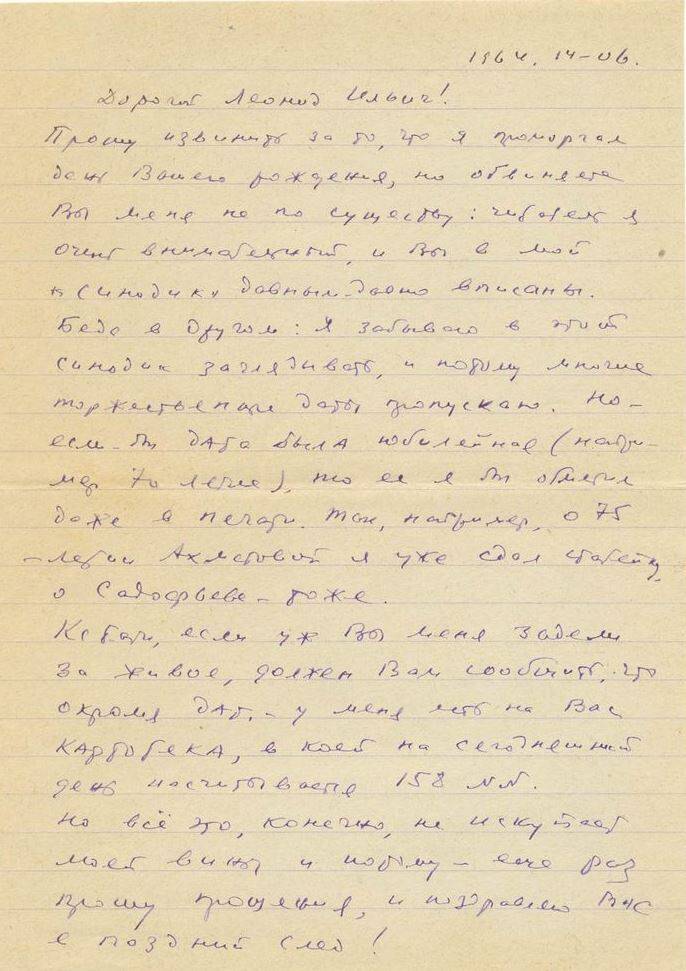 1964. 14-06.
Дорогой Леонид Ильич!
Прошу извинить за то, что я проморгал
день Вашего рождения, но обвиняете
Вы меня не по существу: читатель я
очень внимательный, и Вы в мой
"синодик" давным-давно вписаны.
Беда в другом: я забываю в этот
синодик заглядывать, и потому многие
торжественные даты пропускаю. Но-
если-бы дата была юбилейная (напри-
мер 70 летие), то ее я бы отметил
даже в печати. Так, например, о 75
-летии Ахматовой я уже сдал статейку,
о Садофьеве - тоже.
Кстати, если уж Вы меня задели
за живое, должен Вам сообщить, что
окромя дат, - у меня есть на Вас
картотека, в коей на сегодняшний
день насчитывается 158 №№.
Но всё это, конечно, не искупает
моей вины и потому - еще раз
прошу прощения, и поздравляю Вас
в поздний след!